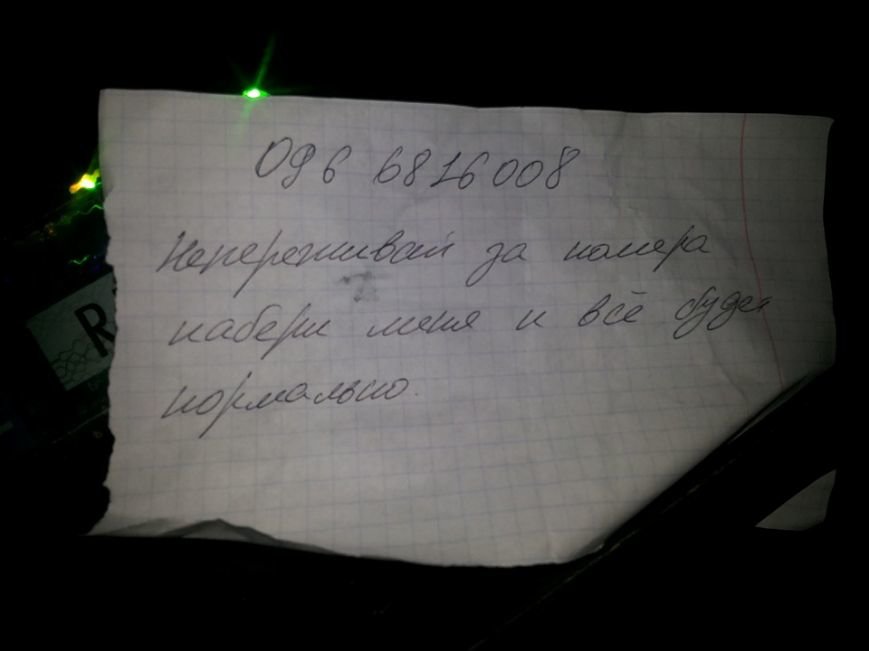 096 6816008
Непереживай за номера
набери меня и всё будет
нормально.
R